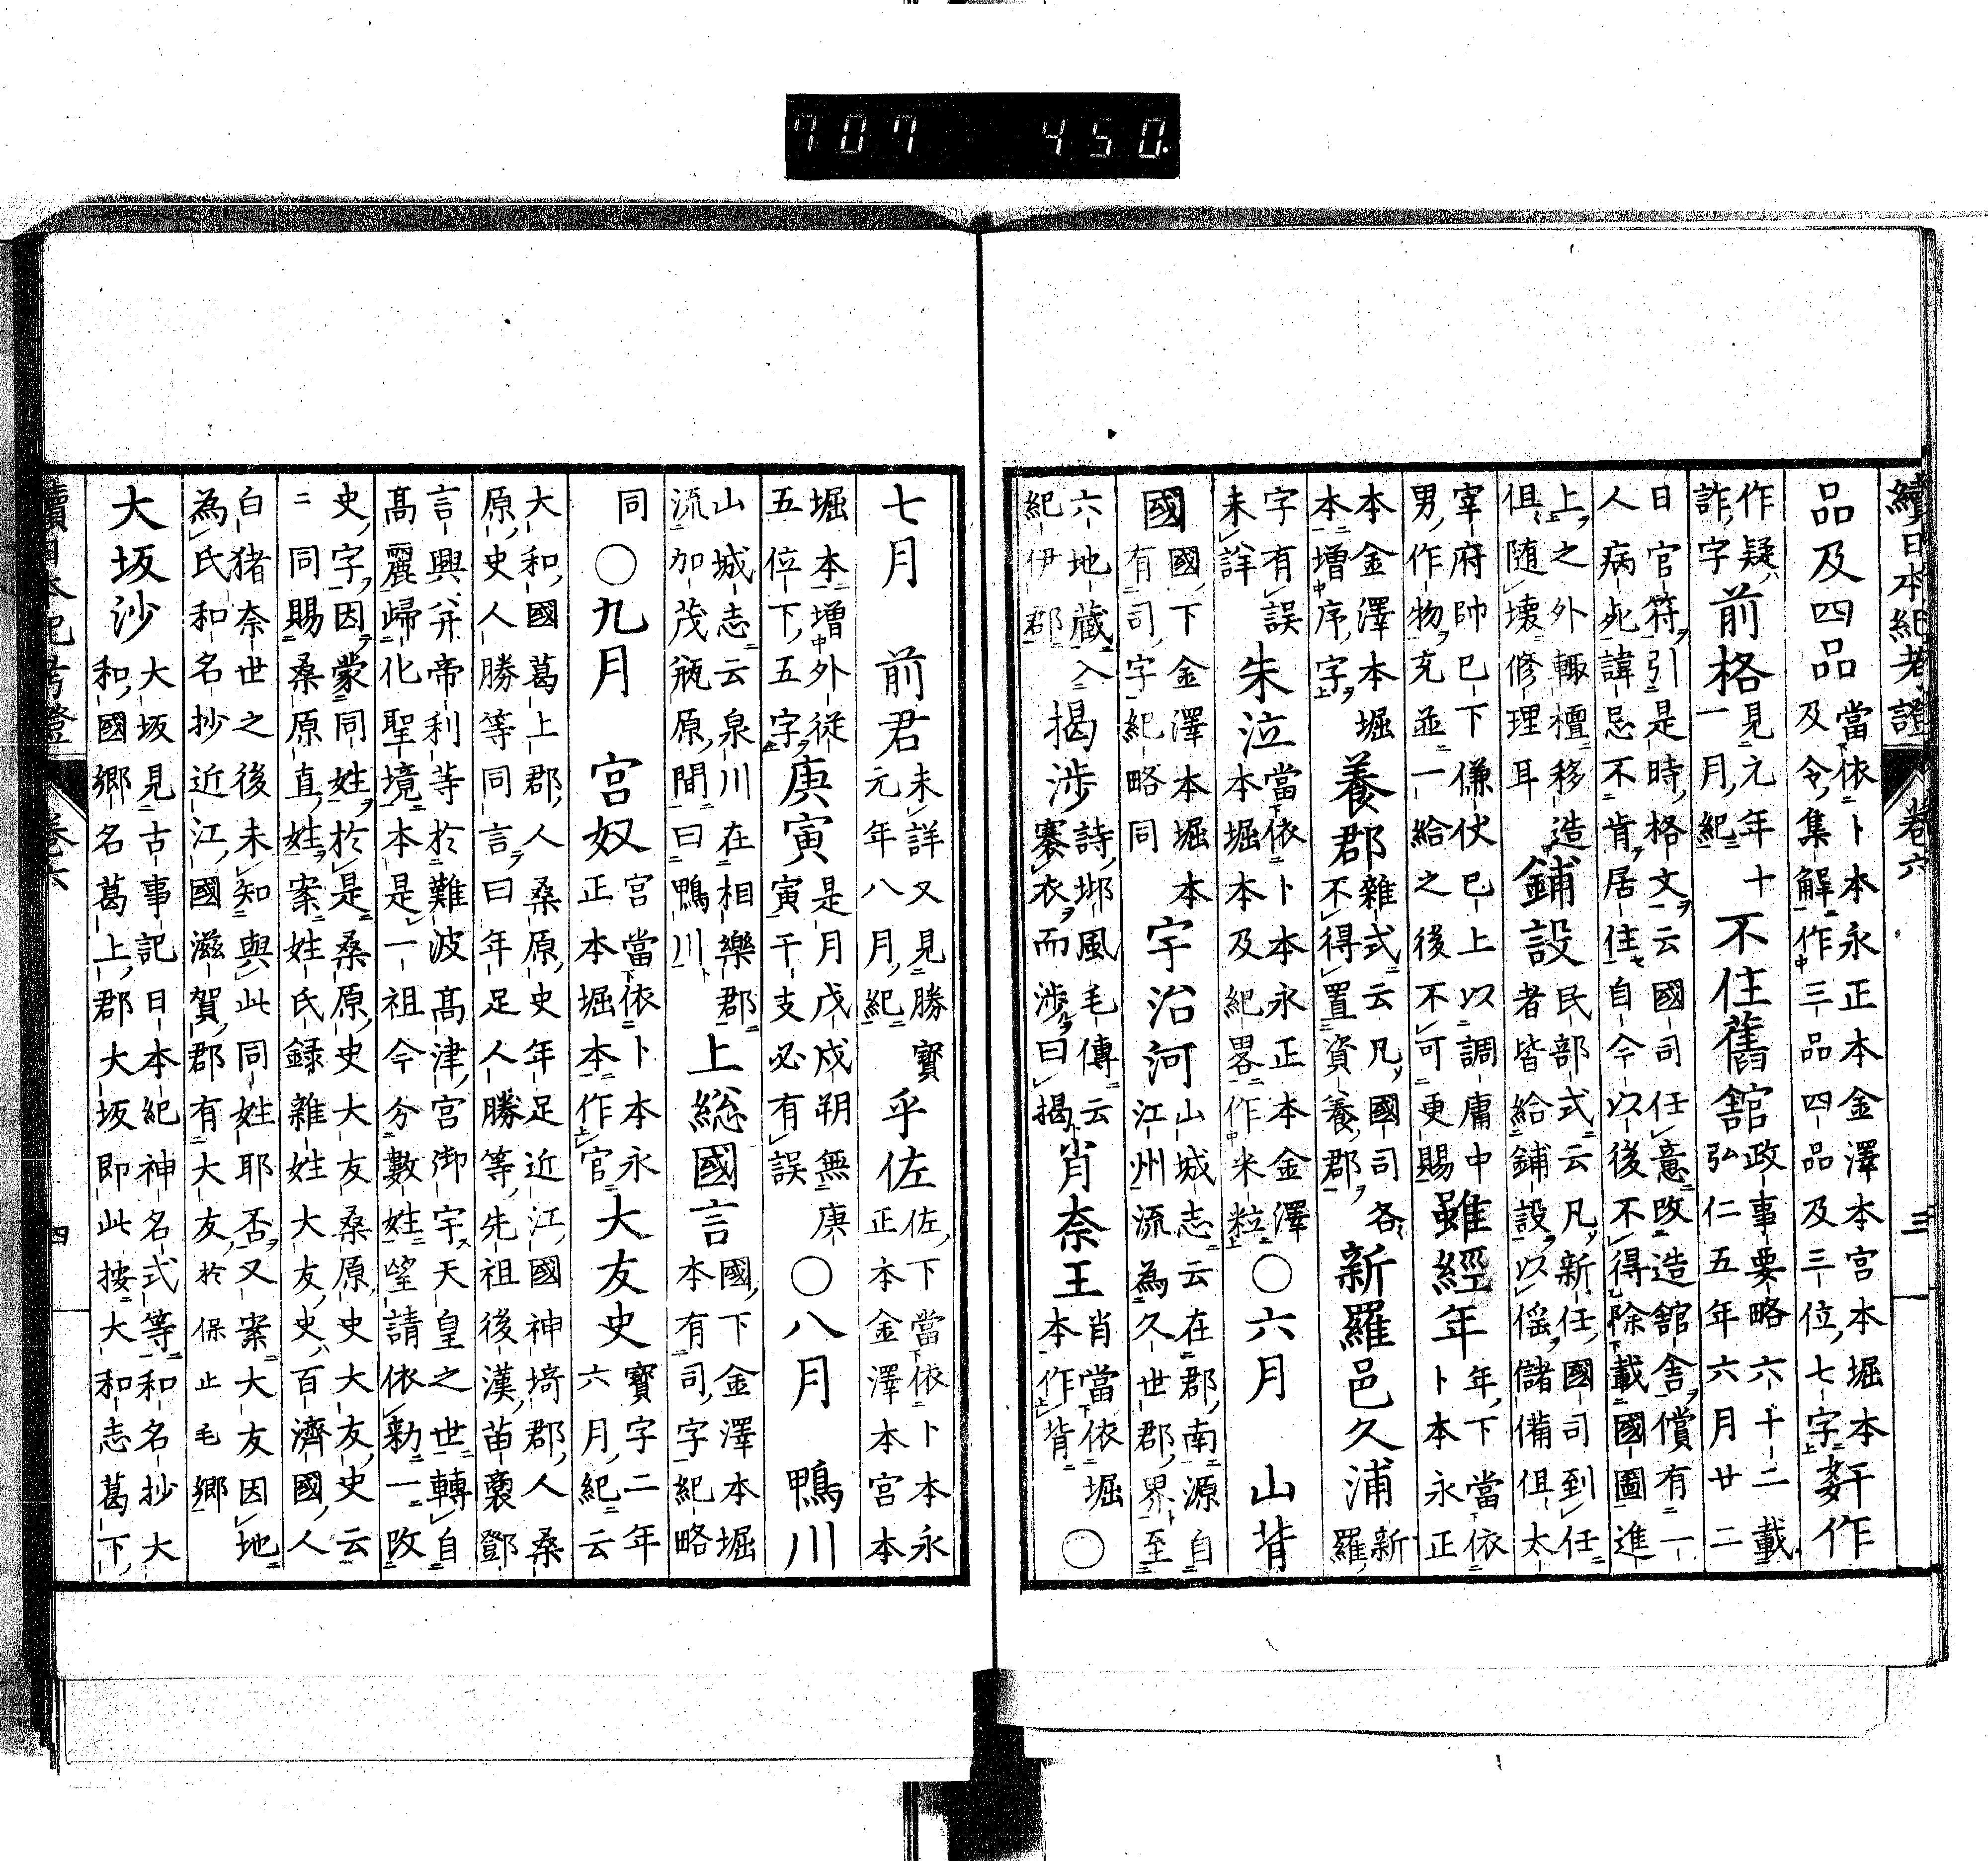 續日本紀考證 卷六 三
品及四品
當依卜本永正本金澤本宮本堀本
及令集解作三品四品及三位七字
奸作
作疑
詐字
前格
見元年十
一月紀
不住舊舘
政事要略六十二載
弘仁五年六月廿二
日官符引是時格文云國司任意改造舘舎償有一
人病死諱忌不肯居住自今以後不得除載國圖進
上之外輙擅移造
俱随壊修理耳
鋪設
民部式云凡新任國司到任
者皆給鋪設以傜儲備俱太
宰府帥已下傔仗已上以調庸中
男作物充並一給之後不可更賜
雖經年
年下當依
卜本永正
本金澤本堀
本増序字
養郡
雜式云凡國司各
不得置資養郡
新羅邑久浦
新
羅
字有誤
未詳
朱泣
當依卜本永正本金澤
本堀本及紀畧作米粒
○六月 山背
國
國下金澤本堀本
有司字紀略同
宇治河
山城志云在郡南源自
江州流為久世郡界至
六地蔵入
紀伊郡
揭渉
詩邶風毛傳云
褰衣而渉曰揭
肖奈王
肖當依堀
本作背
○
七月 前君
未詳又見勝寳
元年八月紀
乎佐
佐下當依卜本永
正本金澤本宮本
堀本増外従
五位下五字
庚寅
是月戊戌朔無庚
寅干支必有誤
○八月 鴨川
山城志云泉川在相樂郡
流加茂瓶原間曰鴨川
上総國言
國下金澤本堀
本有司字紀略
同
○九月 宮奴
宮當依卜本永
正本堀本作官
大友史
寳字二年
六月紀云
大和國葛上郡人桑原史年足近江國神埼郡人桑
原史人勝等同言曰年足人勝等先祖後漢苗裔鄧
言興并帝利等於難波髙津宮御宇天皇之世轉自
髙麗歸化聖境本是一祖今分數姓望請依勅一改
史字因蒙同姓於是桑原史大友桑原史大友史云
二同賜桑原直姓案姓氏録雜姓大友史百濟國人
白猪奈世之後未知與此同姓耶否又案大友因地
為氏和名抄近江國滋賀郡有大友於保止毛郷
大坂沙
大坂見古事記日本紀神名式等和名抄大
和國郷名葛上郡大坂即此按大和志葛下
續日本紀考證 卷六 四
707 450.